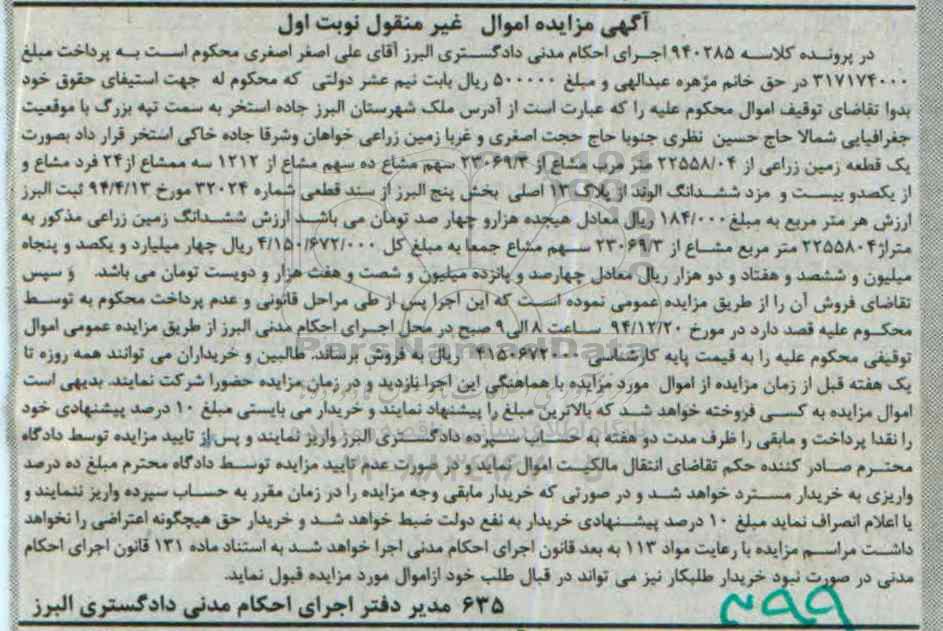 آگهی مزایده اموال غیر منقول نوبت اول
در پرونده کلاسه ۹۴۰۲۸۵ اجرای احکام مدنی دادگستری البرز آقای علی اصغر اصغری محکوم است به پرداخت مبلغ
۳۱۷۱۷۴۰۰۰ در حق خانم مژهره عبدالهی و مبلغ ۵۰۰۰۰۰ ریال بابت نیم عشر دولتی که محکوم له جهت استیفای حقوق خود
بدوا تقاضای توقیف اموال محکوم علیه را که عبارت است از آدرس ملک شهرستان البرز جاده استخر به سمت تپه بزرگ با موقعیت
جغرافیایی شمالا حاج حسین نظری جنوبا حاج حجت اصغری و غربا زمین زراعی خواهان وشرقا جاده خاکی استخر قرار داد بصورت
یک قطعه زمین زراعی از ۲۲۵۵۸/۰۴ متر مربع مشاع از ۲۳۰۶۹/۳ سهم مشاع ده سهم مشاع از ۱۲۱۲ سه ممشاع از ۲۴ فرد مشاع و
از یکصدو بیست و مزد ششدانگ الوند از پلاک ۱۳ اصلی بخش پنج البرز از سند قطعی شماره ۳۲۰۲۴ مورخ ۹۴/۴/۱۳ ثبت البرز
ارزش هر متر مربع به مبلغ ۱۸۴/۰۰۰ ریال معادل هیجده هزارو چهار صد تومان می باشد ارزش ششدانگ زمین زراعی مذکور به
متراژ ۲۲۵۵۸۰۴ متر مربع مشاع از ۲۳۰۶۹/۳ سهم مشاع جمعا به مبلغ کل ۴/۱۵۰/۶۷۲/۰۰۰ ریال چهار میلیارد و یکصد و پنجاه
میلیون و ششصد و هفتاد و دو هزار ریال معادل چهارصد و پانزده میلیون و شصت و هفت هزار و دویست تومان می باشد. و سپس
تقاضای فروش آن را از طریق مزایده عمومی نموده است که این اجرا پس از طی مراحل قانونی و عدم پرداخت محکوم به توسط
محکوم علیه قصد دارد در مورخ ۹۴/۱۲/۲۰ ساعت ۸ الی ۹ صبح در محل اجرای احکام مدنی البرز از طریق مزایده عمومی اموال
توقیفی محکوم علیه را به قیمت پایه کارشناسی ۴۱۵۰۶۷۲۰۰۰ ریال به فروش برساند. طالبین و خریداران می توانند همه روزه تا
یک هفته قبل از زمان مزایده از اموال مورد مزایده با هماهنگی این اجرا بازدید و در زمان مزایده حضورا شرکت نمایند. بدیهی است
اموال مزایده به کسی فروخته خواهد شد که بالاترین مبلغ را پیشنهاد نمایند و خریدار می بایستی مبلغ ۱۰ درصد پیشنهادی خود
را نقدا پرداخت و مابقی را ظرف مدت دو هفته به حساب سپرده دادگستری البرز واریز نمایند و پس از تایید مزایده توسط دادگاه
محترم صادر کننده حکم تقاضای انتقال مالکیت اموال نماید و در صورت عدم تایید مزایده توسط دادگاه محترم مبلغ ده درصد
واریزی به خریدار مسترد خواهد شد و در صورتی که خریدار مابقی وجه مزایده را در زمان مقرر به حساب سپرده واریز ننمایند و
یا اعلام انصراف نماید مبلغ ۱۰ درصد پیشنهادی خریدار به نفع دولت ضبط خواهد شد و خریدار حق هیچگونه اعتراضی را نخواهد
داشت مراسم مزایده با رعایت مواد ۱۱۳ به بعد قانون اجرای احکام مدنی اجرا خواهد شد به استناد ماده ۱۳۱ قانون اجرای احکام
مدنی در صورت نبود خریدار طلبکار نیز می تواند در قبال طلب خود ازاموال مورد مزایده قبول نماید.
۶۳۵ مدیر دفتر اجرای احکام مدنی دادگستری البرز
ParsNamadData